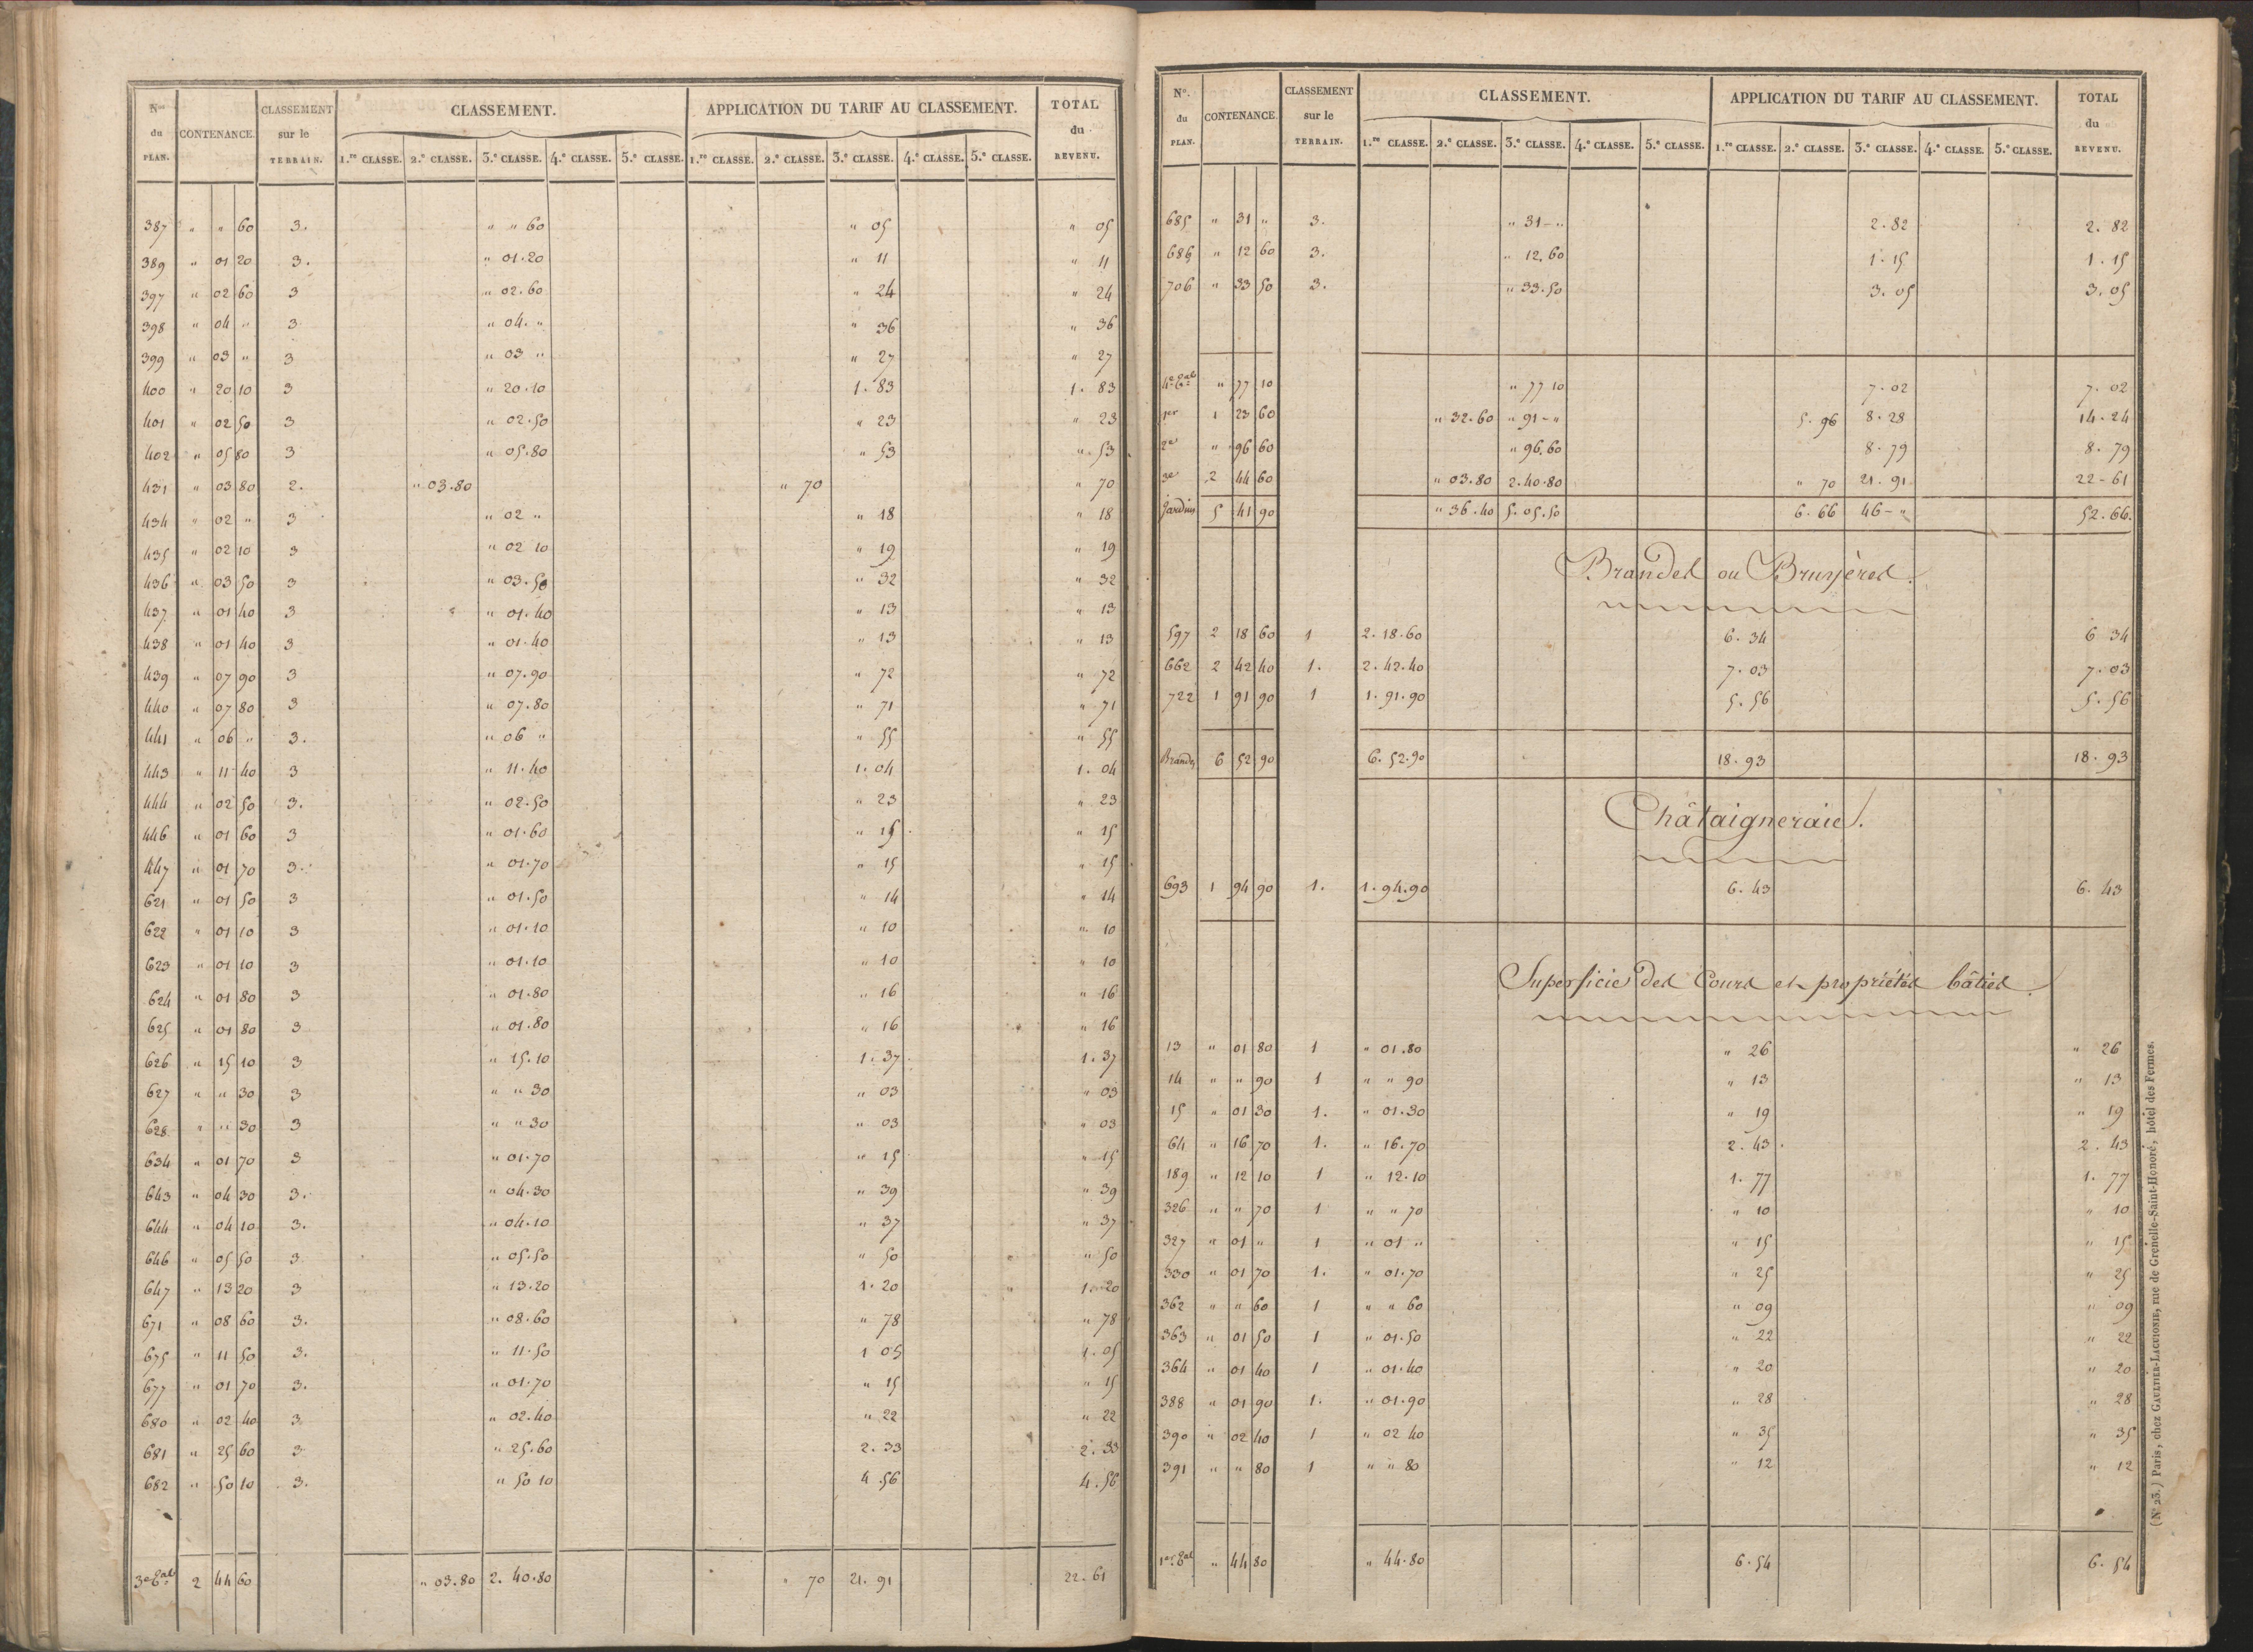 Nos du PLAN. CONTENANCE. CLASSEMENT sur le TERRAIN. CLASSEMENT. APPLICATION DU TARIF AU CLASSEMENT. TOTAL du REVENU.
1.re CLASSE. 2.e CLASSE. 3.e CLASSE. 4.e CLASSE. 5.e CLASSE. 1.re CLASSE. 2.e CLASSE. 3.e CLASSE. 4.e CLASSE. 5.e CLASSE.
387 " " 60 3. " " 60 " 05 " 05
389 " 01 20 3. " 01.20 " 11 " 11
397 " 02 60 3 " 02.60 " 24 " 24
398 " 04 " 3 " 04. " " 36 " 36
399 " 03 " 3 " 03 " " 27 " 27
400 " 20 10 3 " 20.10 1. 83 1. 83
401 " 02 50 3 " 02.50 " 23 " 23
402 " 05 80 3 " 05.80 " 53 " 53
431 " 03 80 2. " 03.80 " 70 " 70
434 " 02 " 3 " 02 " " 18 " 18
435 " 02 10 3 " 02 10 " 19 " 19
436 " 03 50 3 " 03.50 " 32 " 32
437 " 01 40 3 " 01.40 " 13 " 13
438 " 01 40 3 " 01.40 " 13 " 13
439 " 07 90 3 " 07.90 " 72 " 72
440 " 07 80 3 " 07.80 " 71 " 71
441 " 06 " 3. " 06 " " 55 " 55
443 " 11 40 3 " 11.40 1. 04 1. 04
444 " 02 50 3. " 02.50 " 23 " 23
446 " 01 60 3 " 01.60 " 15 " 15
447 " 01 70 3. " 01.70 " 15 " 15
621 " 01 50 3 " 01.50 " 14 " 14
622 " 01 10 3 " 01.10 " 10 " 10
623 " 01 10 3 " 01.10 " 10 " 10
624 " 01 80 3 " 01.80 " 16 " 16
625 " 01 80 3 " 01.80 " 16 " 16
626 " 15 10 3 " 15.10 1. 37 1. 37
627 " " 30 3 " " 30 " 03 " 03
628 " " 30 3 " " 30 " 03 " 03
634 " 01 70 3 " 01.70 " 15 " 15
643 " 04 30 3. " 04.30 " 39 " 39
644 " 04 10 3. " 04.10 " 37 " 37
646 " 05 50 3 " 05.50 " 50 " 50
647 " 13 20 3 " 13.20 1. 20 1. 20
671 " 08 60 3. " 08.60 " 78 " 78
675 " 11 50 3. " 11.50 1 05 1. 05
677 " 01 70 3. " 01.70 " 15 " 15
680 " 02 40 3 " 02.40 " 22 " 22
681 " 25 60 3 " 25.60 2. 33 2. 33
682 " 50 10 3. " 50 10 4 .56 4. 56
3e Tal 2 44 60 " 03.80 2. 40.80 " 70 21. 91 22. 61
No. du PLAN. CONTENANCE. CLASSEMENT sur le TERRAIN. CLASSEMENT. APPLICATION DU TARIF AU CLASSEMENT. TOTAL du REVENU.
1.re CLASSE. 2.e CLASSE. 3.e CLASSE. 4.e CLASSE. 5.e CLASSE. 1.re CLASSE. 2.e CLASSE. 3.e CLASSE. 4.e CLASSE. 5.e CLASSE.
685 " 31 " 3. " 31 - " 2. 82 2. 82
686 " 12 60 3. " 12.60 1. 15 1. 15
706 " 33 50 3. " 33.50 3. 05 3. 05
4e Tal " 77 10 " 77 10 7. 02 7. 02
1er 1 23 60 " 32.60 " 91 - " 5. 96 8. 28 14. 24
2e " 96 60 " 96.60 8. 79 8. 79
3e 2 44 60 " 03.80 2.40.80 " 70 21. 91 22 - 61
Jardins 5 41 90 " 36.40 5.05.50 6. 66 46 - " 52.66.
Brandes ou Bruyères.
597 2 18 60 1 2.18.60 6. 34 6 34
662 2 42 40 1. 2.42.40 7. 03 7. 03
722 1 91 90 1 1.91.90 5. 56 5. 56
Brandes 6 52 90 6.52.90 18. 93 18. 93
Châtaigneraie.
693 1 94 90 1. 1.94.90 6. 43 6. 43
Superficie des Cours et propriétés bâties.
13 " 01 80 1 " 01.80 " 26 " 26
14 " " 90 1 " " 90 " 13 " 13
15 " 01 30 1. " 01.30 " 19 " 19
64 " 16 70 1. " 16.70 2. 43 2. 43
189 " 12 10 1 " 12.10 1. 77 1. 77
326 " " 70 1 " " 70 " 10 " 10
327 " 01 " 1 " 01 " " 15 " 15
330 " 01 70 1. " 01.70 " 25 " 25
362 " " 60 1 " " 60 " 09 " 09
363 " 01 50 1 " 01.50 " 22 " 22
364 " 01 40 1 " 01.40 " 20 " 20
388 " 01 90 1. " 01.90 " 28 " 28
390 " 02 40 1 " 02 40 " 35 " 35
391 " " 80 1 " " 80 " 12 " 12
1er Tal " 44 80 " 44.80 6.54 6. 54
(No 23.) Paris, chez GAULTIER-LAGUIONIE, rue de Grenelle-Saint-Honoré, hôtel des Fermes.